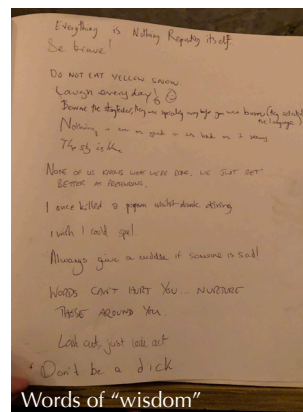 Everything is Nothing Repeating itself.
Be brave!
DO NOT EAT YELLOW SNOW.
Laugh everyday!
Beware the storyteller, they are speaking long before you were born (they
the language)
Nothing is as good or as bad as it
The sky is blue
NONE OF US KNOWS WHAT WE'RE DOING. WE JUST GET
BETTER AT PRETENDING.
I once killed 8 whilst drunk driving
I wish I could spel.
Always give a cuddle if someone is sad!
WORDS CAN'T HURT YOU... NURTURE
THOSE AROUND YOU.
Look out, just look out
Don't be a dick
Words of "wisdom"